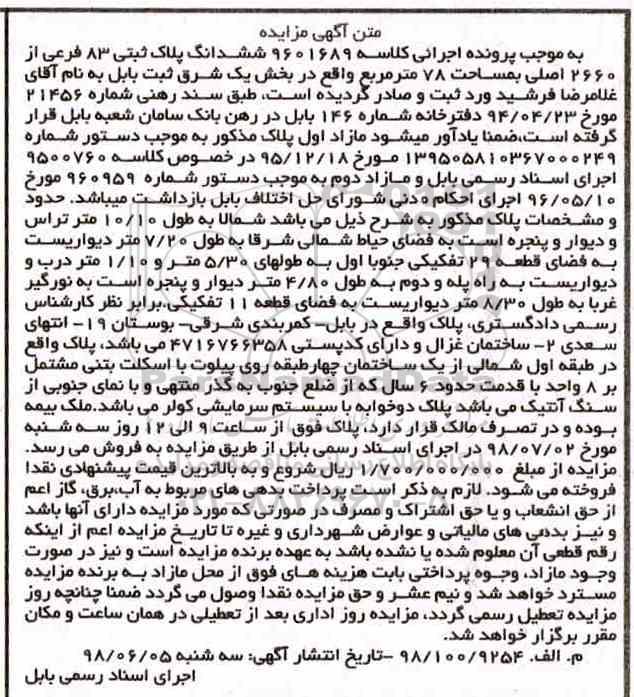 متن آگهی مزایده
به موجب پرونده اجرائی کلاسه ۹۶۰۱۶۸۹ ششدانگ پلاک ثبتی ۸۳ فرعی از
۲۶۶۰ اصلی بمساحت ۷۸ مترمربع واقع در بخش یک شرق ثبت بابل به نام آقای
غلامرضا فرشید ورد ثبت و صادر گردیده است، طبق سند رهنی شماره ۲۱۴۵۶
مورخ ۹۴/۰۴/۲۳ دفترخانه شماره ۱۴۶ بابل در رهن بانک سامان شعبه بابل قرار
گرفته است،ضمنا یادآور میشود مازاد اول پلاک مذکور به موجب دستور شماره
۱۳۹۵۰۵۸۱۰۳۶۷۰۰۰۲۴۹ مورخ ۹۵/۱۲/۱۸ در خصوص کلاسه ۹۵۰۰۷۶۰
اجرای اسناد رسمی بابل و مازاد دوم به موجب دستور شماره ۹۶۰۹۵۹ مورخ
۹۶/۰۵/۱۰ اجرای احکام مدنی شورای حل اختلاف بابل بازداشت میباشد. حدود
و مشخصات پلاک مذکور به شرح ذیل می باشد شمالا به طول ۱۰/۱۰ متر تراس
و دیوار و پنجره است به فضای حیاط شمالی شرقا به طول ۷/۲۰ متر دیواریست
به فضای قطعه ۲۹ تفکیکی جنوبا اول به طولهای ۵/۳۰ متر و ۱/۱۰ متر درب و
دیواریست به راه پله و دوم به طول ۴/۸۰ متر دیوار و پنجره است به نورگیر
غربا به طول ۸/۳۰متر دیواریست به فضای قطعه ۱۱ تفکیکی.برابر نظر کارشناس
رسمی دادگستری، پلاک واقع در بابل- کمربندی شرقی- بوستان ۱۹- انتهای
سعدی ۲- ساختمان غزال و دارای کدپستی ۴۷۱۶۷۶۶۳۵۸ می باشد، پلاک واقع
در طبقه اول شمالی از یک ساختمان چهارطبقه روی پیلوت با اسکلت بتنی مشتمل
بر ۸ واحد با قدمت حدود ۶ سال که از ضلع جنوب به گذر منتهی و با نمای جنوبی از
سنگ آنتیک می باشد پلاک دوخوابه با سیستم سرمایشی کولر می باشد.ملک بیمه
بوده و در تصرف مالک قرار دارد، پلاک فوق از ساعت ۹ الی ۱۲ روز سه شنبه
مورخ ۹۸/۰۷/۰۲ در اجرای اسناد رسمی بابل از طریق مزایده به فروش می رسد.
مزایده از مبلغ ۱/۷۰۰/۰۰۰/۰۰۰ ریال شروع و به بالاترین قیمت پیشنهادی نقدا
فروخته می شود. لازم به ذکر است پرداخت بدهی های مربوط به آب،برق، گاز اعم
از حق انشعاب و یا حق اشتراک و مصرف در صورتی که مورد مزایده دارای آنها باشد
و نیز بدهی های مالیاتی و عوارض شهرداری و غیره تا تاریخ مزایده اعم از اینکه
رقم قطعی آن معلوم شده یا نشده باشد به عهده برنده مزایده است و نیز در صورت
وجود مازاد، وجوه پرداختی بابت هزینه های فوق از محل مازاد به برنده مزایده
مسترد خواهد شد و نیم عشر و حق مزایده نقدا وصول می گردد ضمنا چنانچه روز
مزایده تعطیل رسمی گردد، مزایده روز اداری بعد از تعطیلی در همان ساعت و مکان
مقرر برگزار خواهد شد.
م. الف. ۹۸/۱۰۰/۹۲۵۴ -تاریخ انتشار آگهی: سه شنبه ۹۸/۰۶/۰۵
اجرای اسناد رسمی بابل